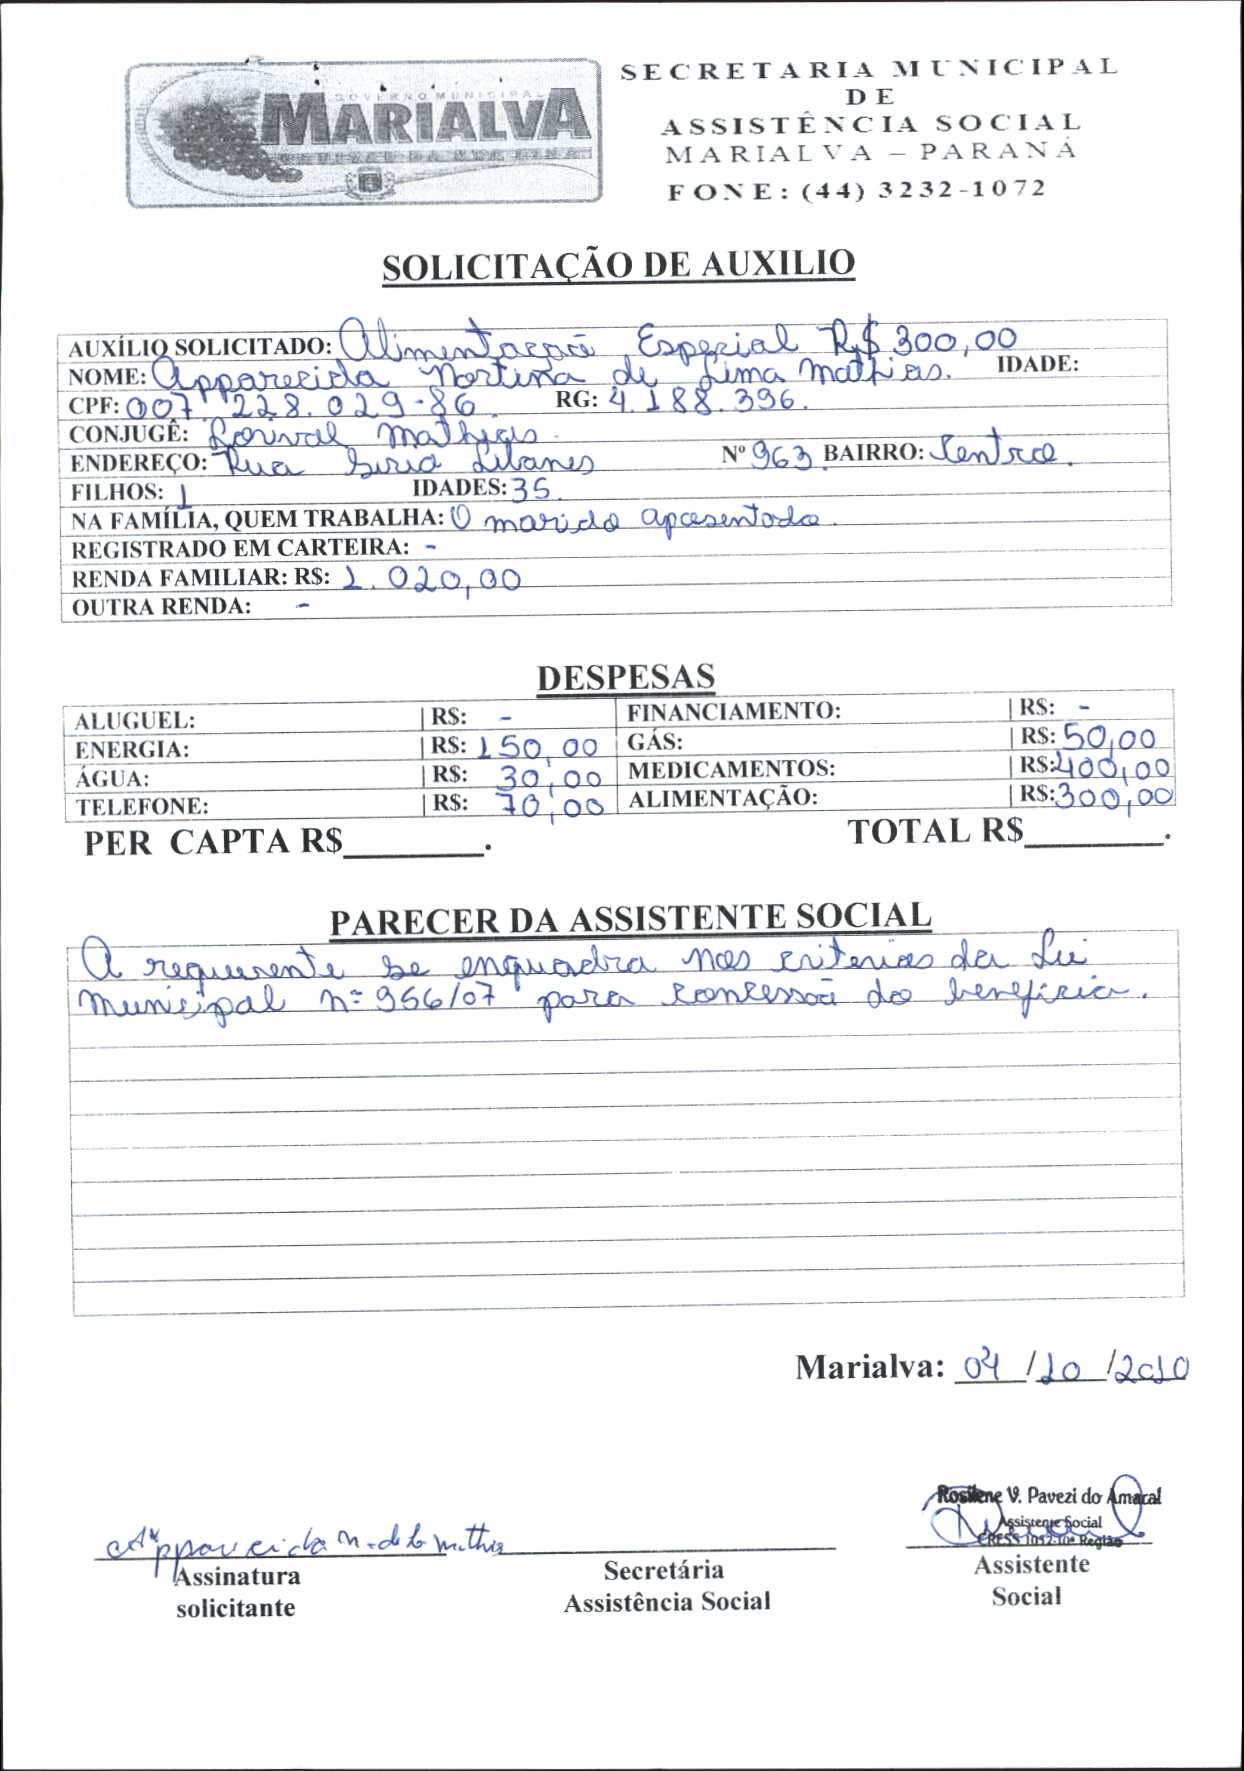 GOVERNO MUNICIPAL
MARIALVA
CAPITAL DA UVA FINA
SECRETARIA MUNICIPAL
DE
ASSISTÊNCIA SOCIAL
MARIALVA – PARANÁ
FONE: (44) 3232-1072
SOLICITAÇÃO DE AUXILIO
AUXÍLIO SOLICITADO: Alimentação Especial R$ 300,00
NOME: Apparecida Martina de Lima Mathias. IDADE:
CPF: 007.228.029-86. RG: 4.188.396.
CONJUGÊ: Lorival Mathias.
ENDEREÇO: Rua Sirio Libanes Nº 963. BAIRRO: Centro.
FILHOS: 1 IDADES: 35.
NA FAMÍLIA, QUEM TRABALHA: O marido aposentado.
REGISTRADO EM CARTEIRA: -
RENDA FAMILIAR: R$: 1.020,00
OUTRA RENDA: -
DESPESAS
ALUGUEL: | R$: - FINANCIAMENTO: | R$: -
ENERGIA: | R$: 150,00 GÁS: | R$: 50,00
ÁGUA: | R$: 30,00 MEDICAMENTOS: | R$: 400,00
TELEFONE: | R$: 70,00 ALIMENTAÇÃO: | R$: 300,00
PER CAPTA R$________. TOTAL R$________.
PARECER DA ASSISTENTE SOCIAL
A requerente se enquadra nos criterios da Lei
Municipal nº 956/07 para concessão do beneficio.
Marialva: 04/10/2010
Apparecida M. de L. Mathias
Rosilene V. Pavezi do Amaral
Assistente Social
CRESS 1052-10ª Região
Assinatura
solicitante
Secretária
Assistência Social
Assistente
Social